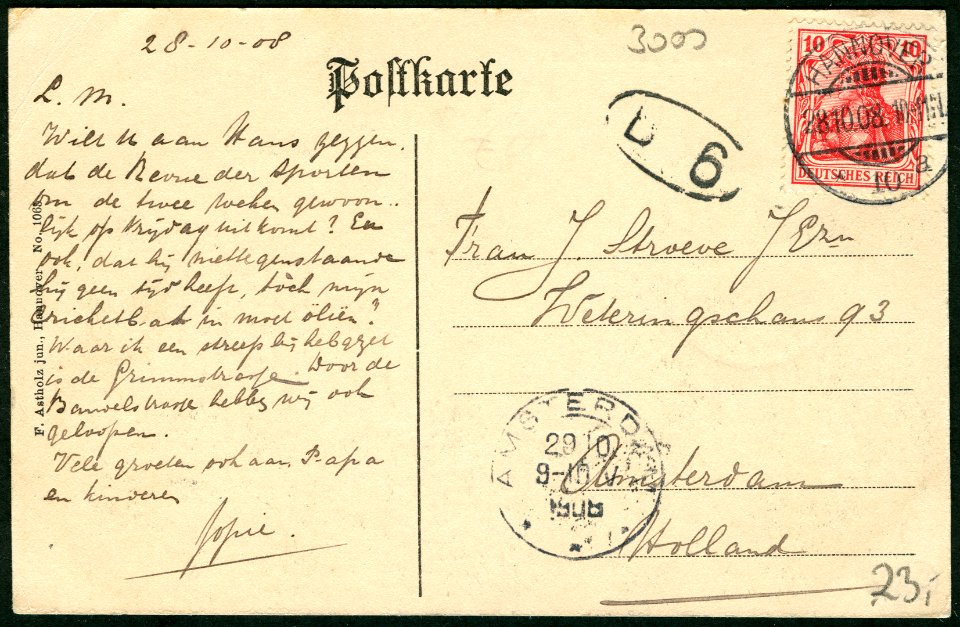 28-10-08
3000
Postkarte
L. M.
Wilt U aan Hans zeggen,
dat de Revue der Sporten
om de twee weken gewoon..
lijk op Vrijdag uitkomt? En
ook, dat hij niettegenstaande
hij geen tijd heeft, tòch mijn
cricketbat in moet öliën."
Waar ik een streep bij heb gezet
is de Grimmstrasse. Door de
strasse hebben wij ook
geloopen.
Vele groeten ook aan Papa
en kinderen
Jopie.
F. Astholz jun., Hannover. No. 1068
D 6
10 10
DEUTSCHES REICH
HANNOVER
28.10.08. 10-11V.
* 10 a
Frau J. Stroeve JEzn
Weteringschans 93
Amsterdam
Holland
AMSTERDAM
29 10
9-10 V
* 1 *
23,-